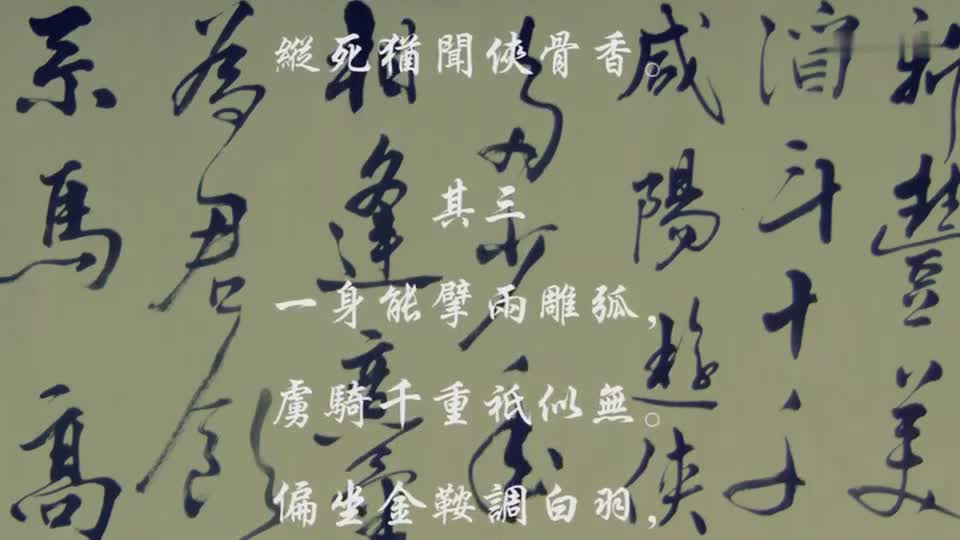 縱死猶聞俠骨香。
其三
一身能擘兩雕弧，
虜騎千重祇似無。
偏坐金鞍調白羽，
新豐美
酒斗十千
咸陽遊俠
多少年
相逢意氣
為君飲
系馬高